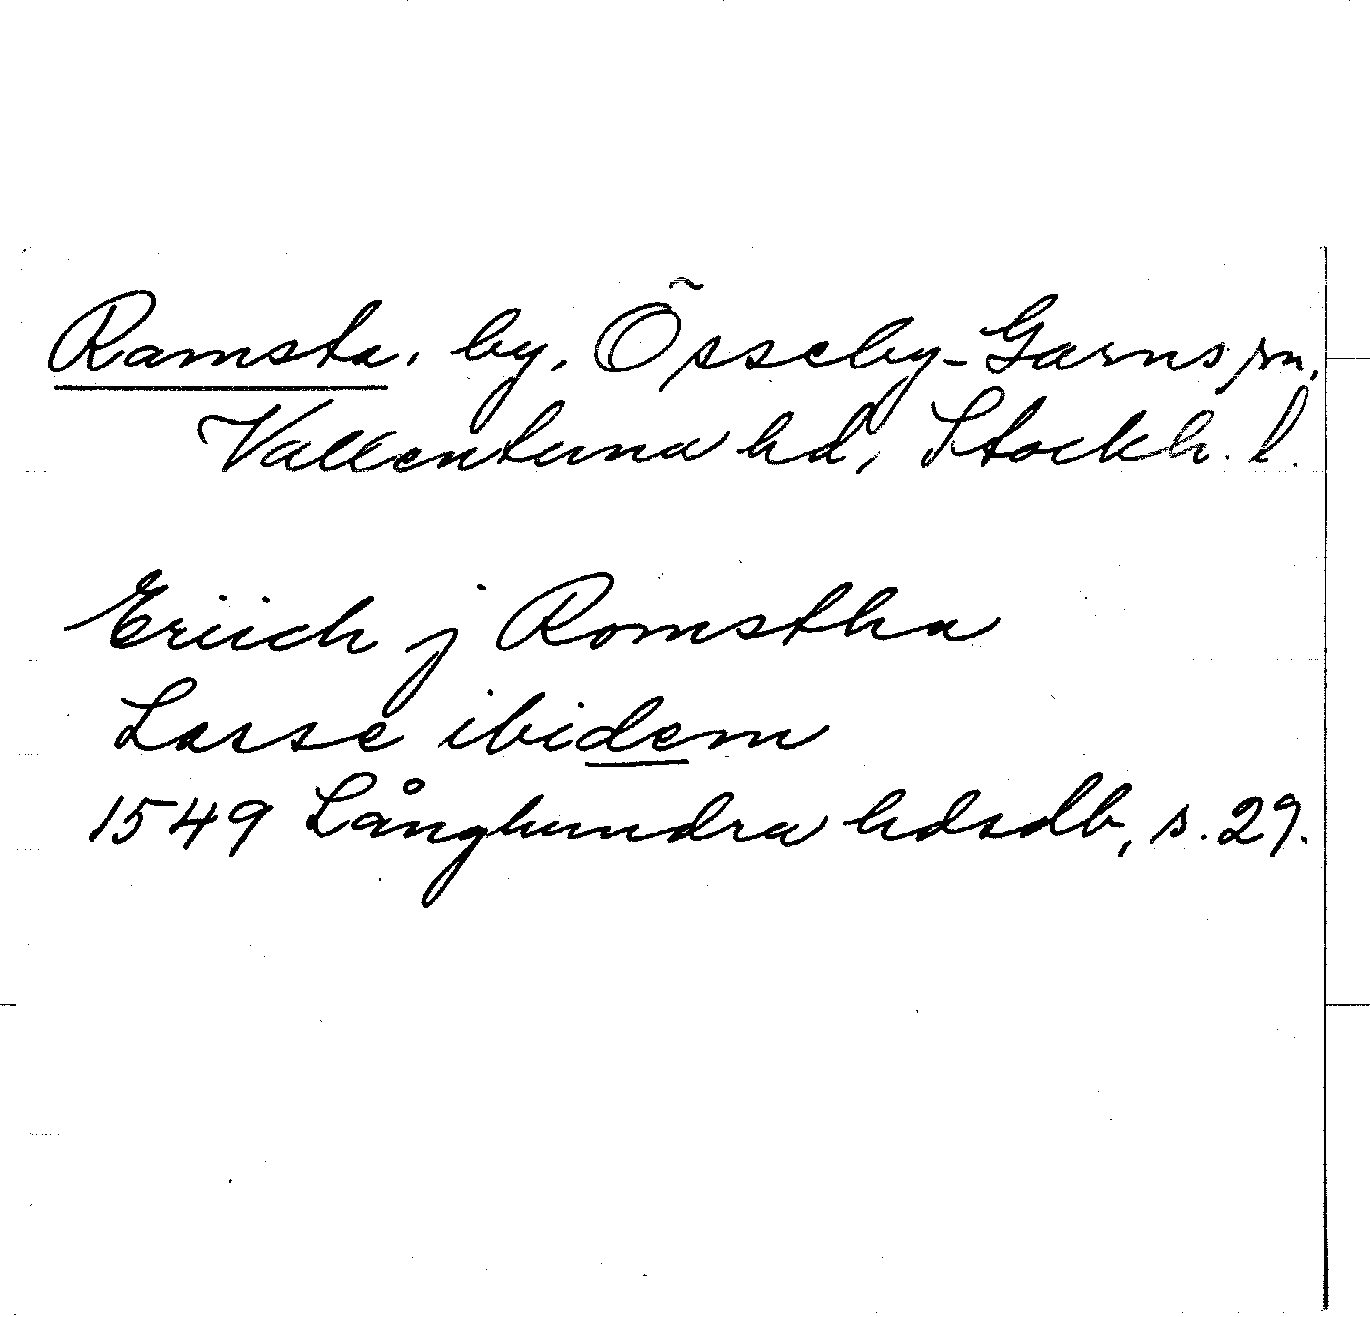 Ramsta. by, Össeby-Garns sn,
Vallentuna hd, Stockh. l.
Eriich j Romstha
Lasse ibidem
1549 Långhundra hdsdb, s. 29.